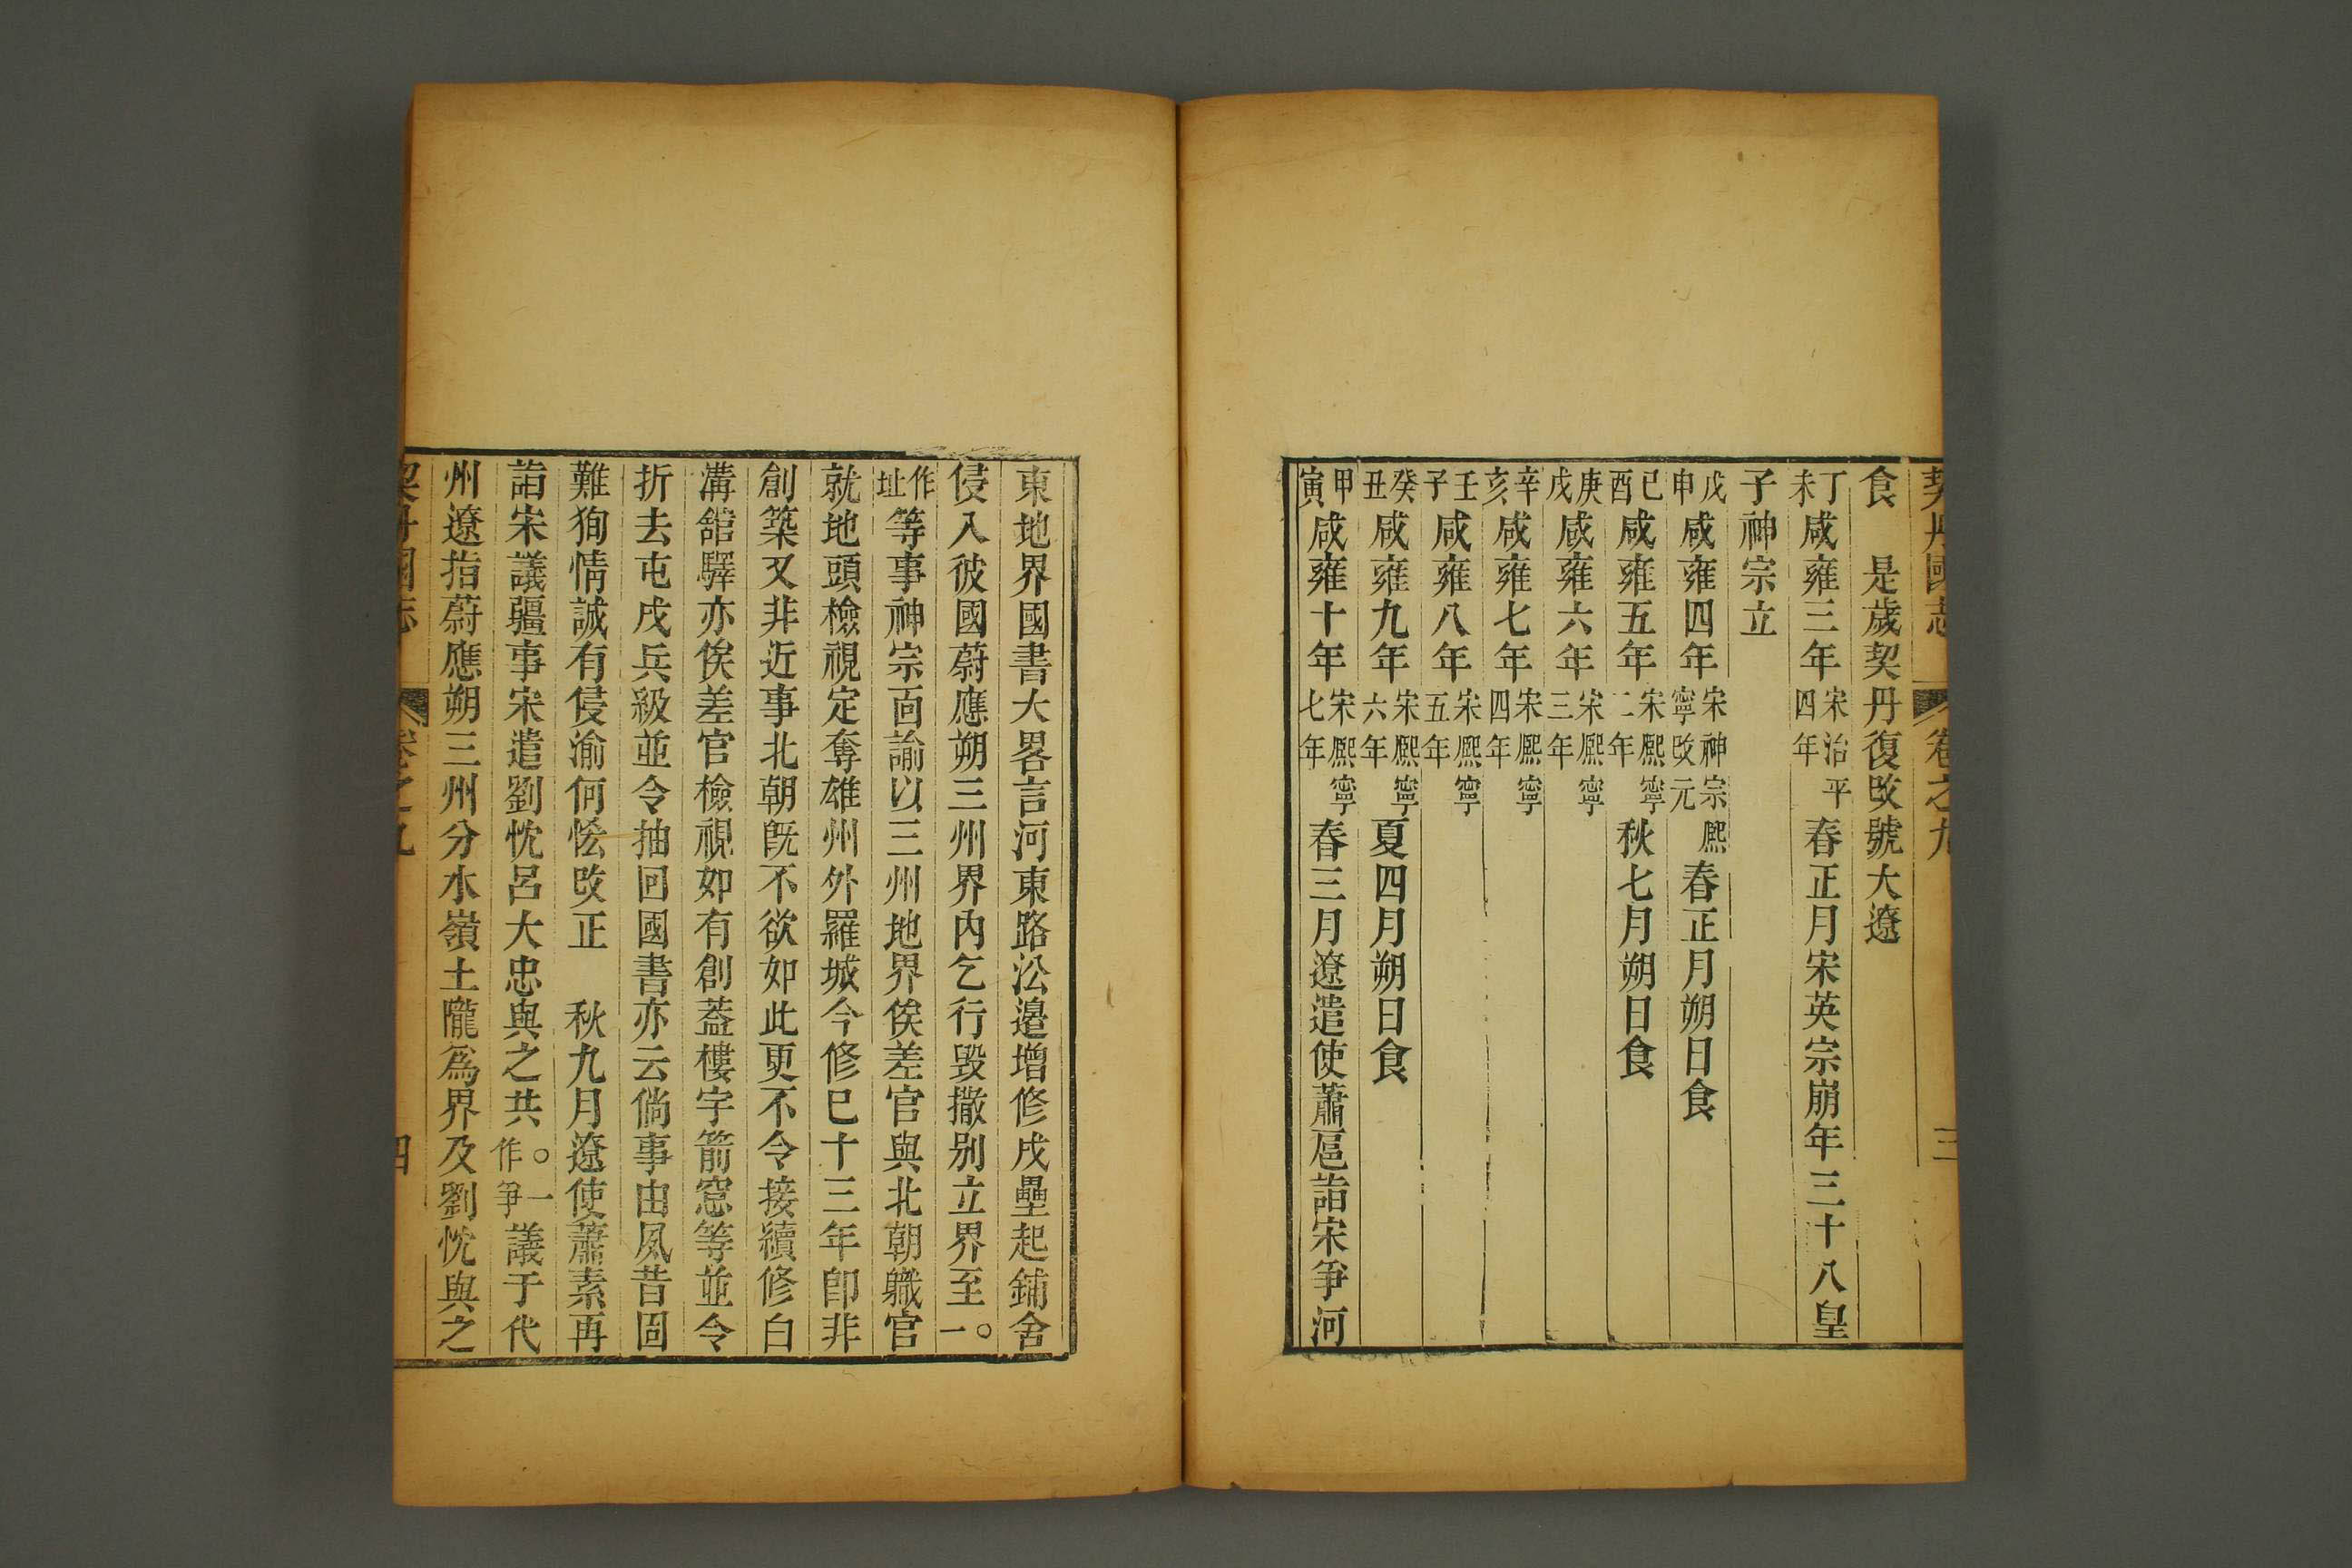 契丹國志 卷之九 三
食　是歲契丹復改號大遼
丁未咸雍三年宋治平四年春正月宋英宗崩年三十八皇
子神宗立
戊申咸雍四年宋神宗熈寧改元春正月朔日食
已酉咸雍五年宋熈寧二年秋七月朔日食
庚戌咸雍六年宋熈寧三年
辛亥咸雍七年宋熈寧四年
壬子咸雍八年宋熈寧五年
癸丑咸雍九年宋熈寧六年夏四月朔日食
甲寅咸雍十年宋熈寧七年春三月遼遣使蕭扈詣宋爭河
東地界國書大畧言河東路㳂邉增修戍壘起鋪舍
侵入彼國蔚應朔三州界內乞行毀撒别立界至○一
作址等事神宗面諭以三州地界俟差官與北朝職官
就地頭檢視定奪雄州外羅城今修巳十三年即非
創築又非近事北朝旣不欲如此更不令接續修白
溝舘驛亦俟差官檢視如有創蓋樓宇箭窓等並令
折去屯戍兵級並令抽回國書亦云倘事由夙昔固
難狥情誠有侵渝何恡改正　秋九月遼使蕭素再
詣宋議疆事宋遣劉忱呂大忠與之共○一作爭議于代
州遼指蔚應朔三州分水嶺土隴爲界及劉忱與之
契丹國志 卷之九 四